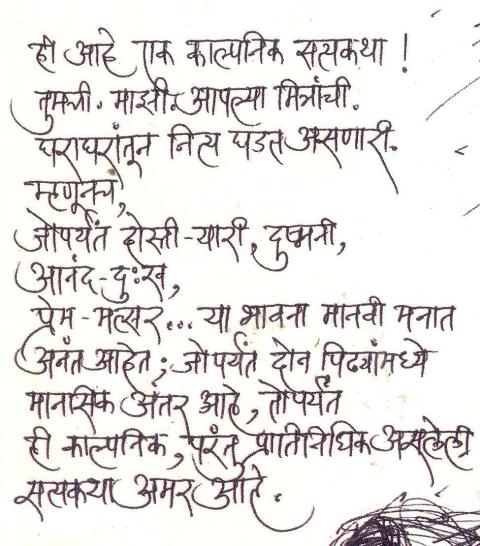 ही आहे एक काल्पनिक सत्यकथा !
तुमची. माझी. आपल्या मित्रांची.
घराघरांतून नित्य घडत असणारी.
म्हणूनच,
जोपर्यंत दोस्ती-यारी, दुष्मनी,
आनंद-दुःख,
प्रेम-मत्सर... या भावना मानवी मनात
अनंत आहेत; जोपर्यंत दोन पिढ्यांमध्ये
मानसिक अंतर आहे, तोपर्यंत
ही काल्पनिक, परंतु प्रातिनिधिक असलेली
सत्यकथा अमर आहे.